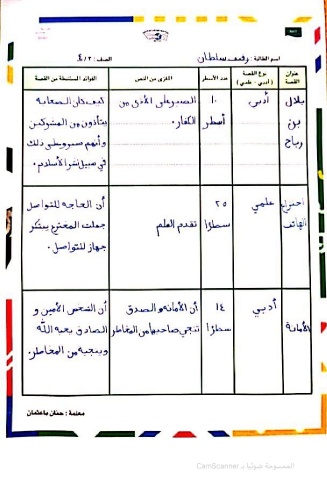 اسم الطالبة : رفيف سلطان
الصف : ٤/٣
عنوان القصة
نوع القصة (أدبي - علمي)
عدد الأسطر
المغزى من النص
الفوائد المستنبطة من القصة
بلال بن رباح
أدبي
١٠ أسطر
الصبر على الأذى من
الكفار.
كيف كان الصحابه
يتأذون من المشركين
وأنهم صبروا على ذلك
في سبيل نشر الأسلام.
اختراع الهاتف
علمي
٢٥ سطرًا
تقدم العلم
أن الحاجه للتواصل
جعلت المخترع يبتكر
جهاز للتواصل.
الأمانة
أدبي
١٤ سطرًا
أن الأمانه والصدق
تنجي صاحبها من المخاطر
أن الشخص الأمين و
الصادق يحبه الله
وينجيه من المخاطر.
معلمة : حنان باعثمان
الممسوحة ضوئيا بـ CamScanner